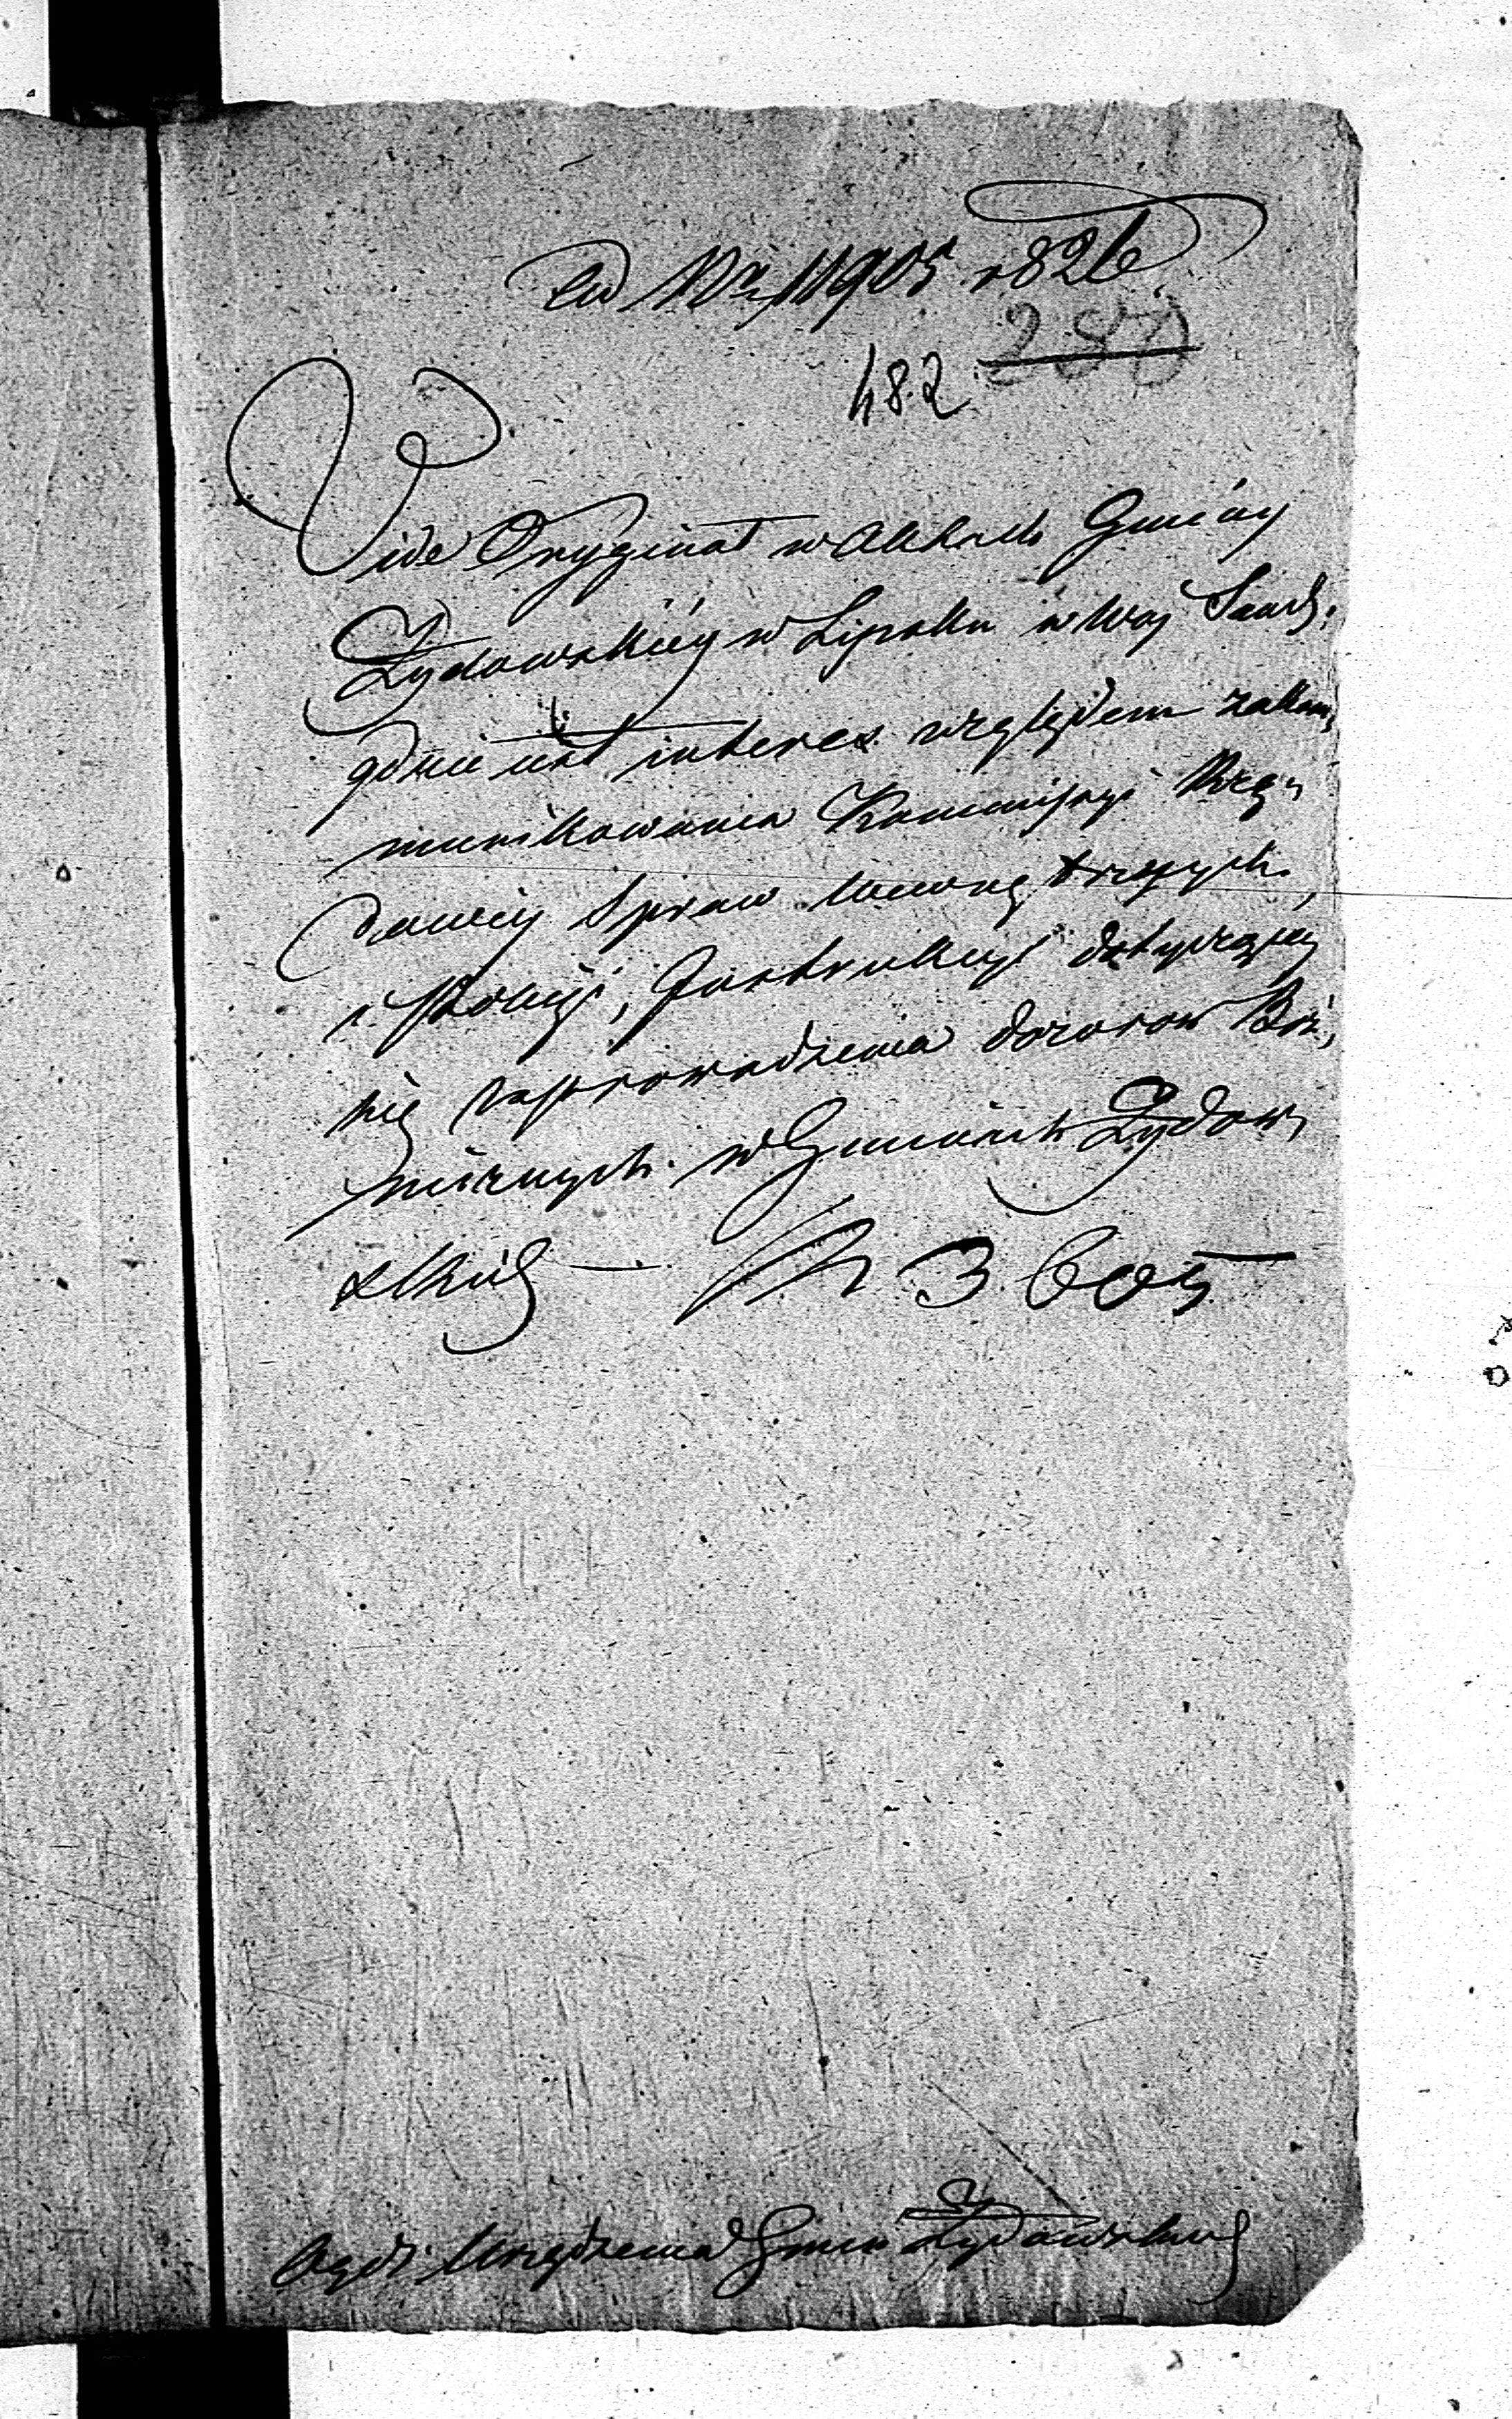 ad Nr 11905 1826
287
482
Vide Oryginał w Aktach Gminy
Żydowskiéy w Lipsku w Woj Sand:
gdzie iest interes względem zakom,
munikowania Kommissyi Rzą,
dowéy Spraw Wewnętrznych
i Policyi, Instrukcyi dotyczącey
się zaprowadzenia dozorow Boż,
niczych w Gminach Żydow,
skich — N 3605
Urządzenia Gmin Żydowskich